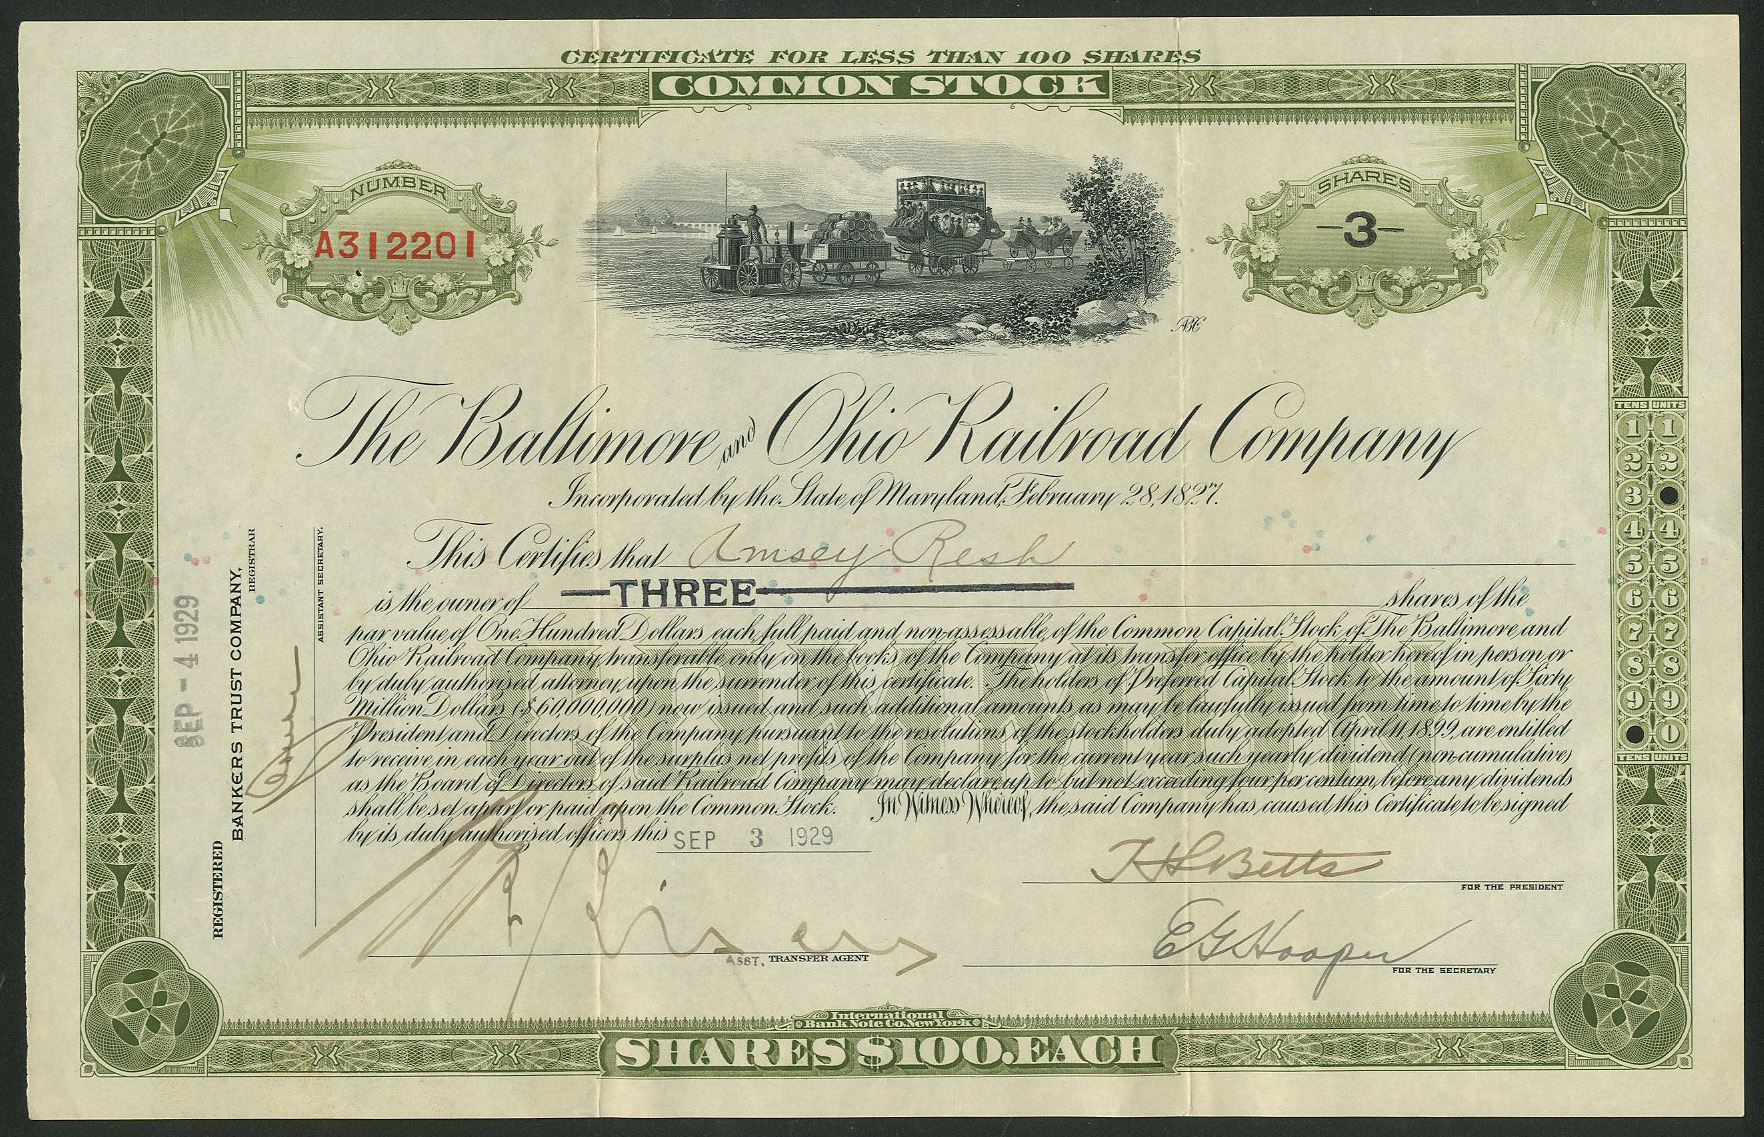 CERTIFICATE FOR LESS THAN 100 SHARES
COMMON STOCK
NUMBER
A312201
SHARES
-3-
ABC
The Baltimore and Ohio Railroad Company
Incorporated by the State of Maryland, February 28, 1827.
This Certifies that Amsey Resh
is the owner of —THREE— shares of the
par value of One Hundred Dollars each, full paid and non-assessable, of the Common Capital Stock of The Baltimore and
Ohio Railroad Company, transferable only on the books of the Company at its transfer office by the holder hereof in person or
by duly authorised attorney, upon the surrender of this certificate. The holders of Preferred Capital Stock to the amount of Sixty
Million Dollars ($60,000,000) now issued and such additional amounts as may be lawfully issued from time to time by the
President and Directors of the Company, pursuant to the resolutions of the stockholders duly adopted April 11, 1899, are entitled
to receive in each year out of the surplus net profits of the Company for the current year such yearly dividend (non-cumulative)
as the Board of Directors of said Railroad Company may declare up to but not exceeding four per centum, before any dividends
shall be set apart or paid upon the Common Stock. In Witness Whereof, the said Company has caused this Certificate to be signed
by its duly authorised officers this SEP 3 1929
COMMON
T H S Betts
FOR THE PRESIDENT
E G Hooper
FOR THE SECRETARY
ASST. TRANSFER AGENT
SEP - 4 1929
REGISTERED
BANKERS TRUST COMPANY,
REGISTRAR
ASSISTANT SECRETARY.
TENS UNITS
1 1
2 2
3
4 4
5 5
6 6
7 7
8 8
9 9
0
TENS UNITS
International
Bank Note Co. New York
SHARES $100. EACH